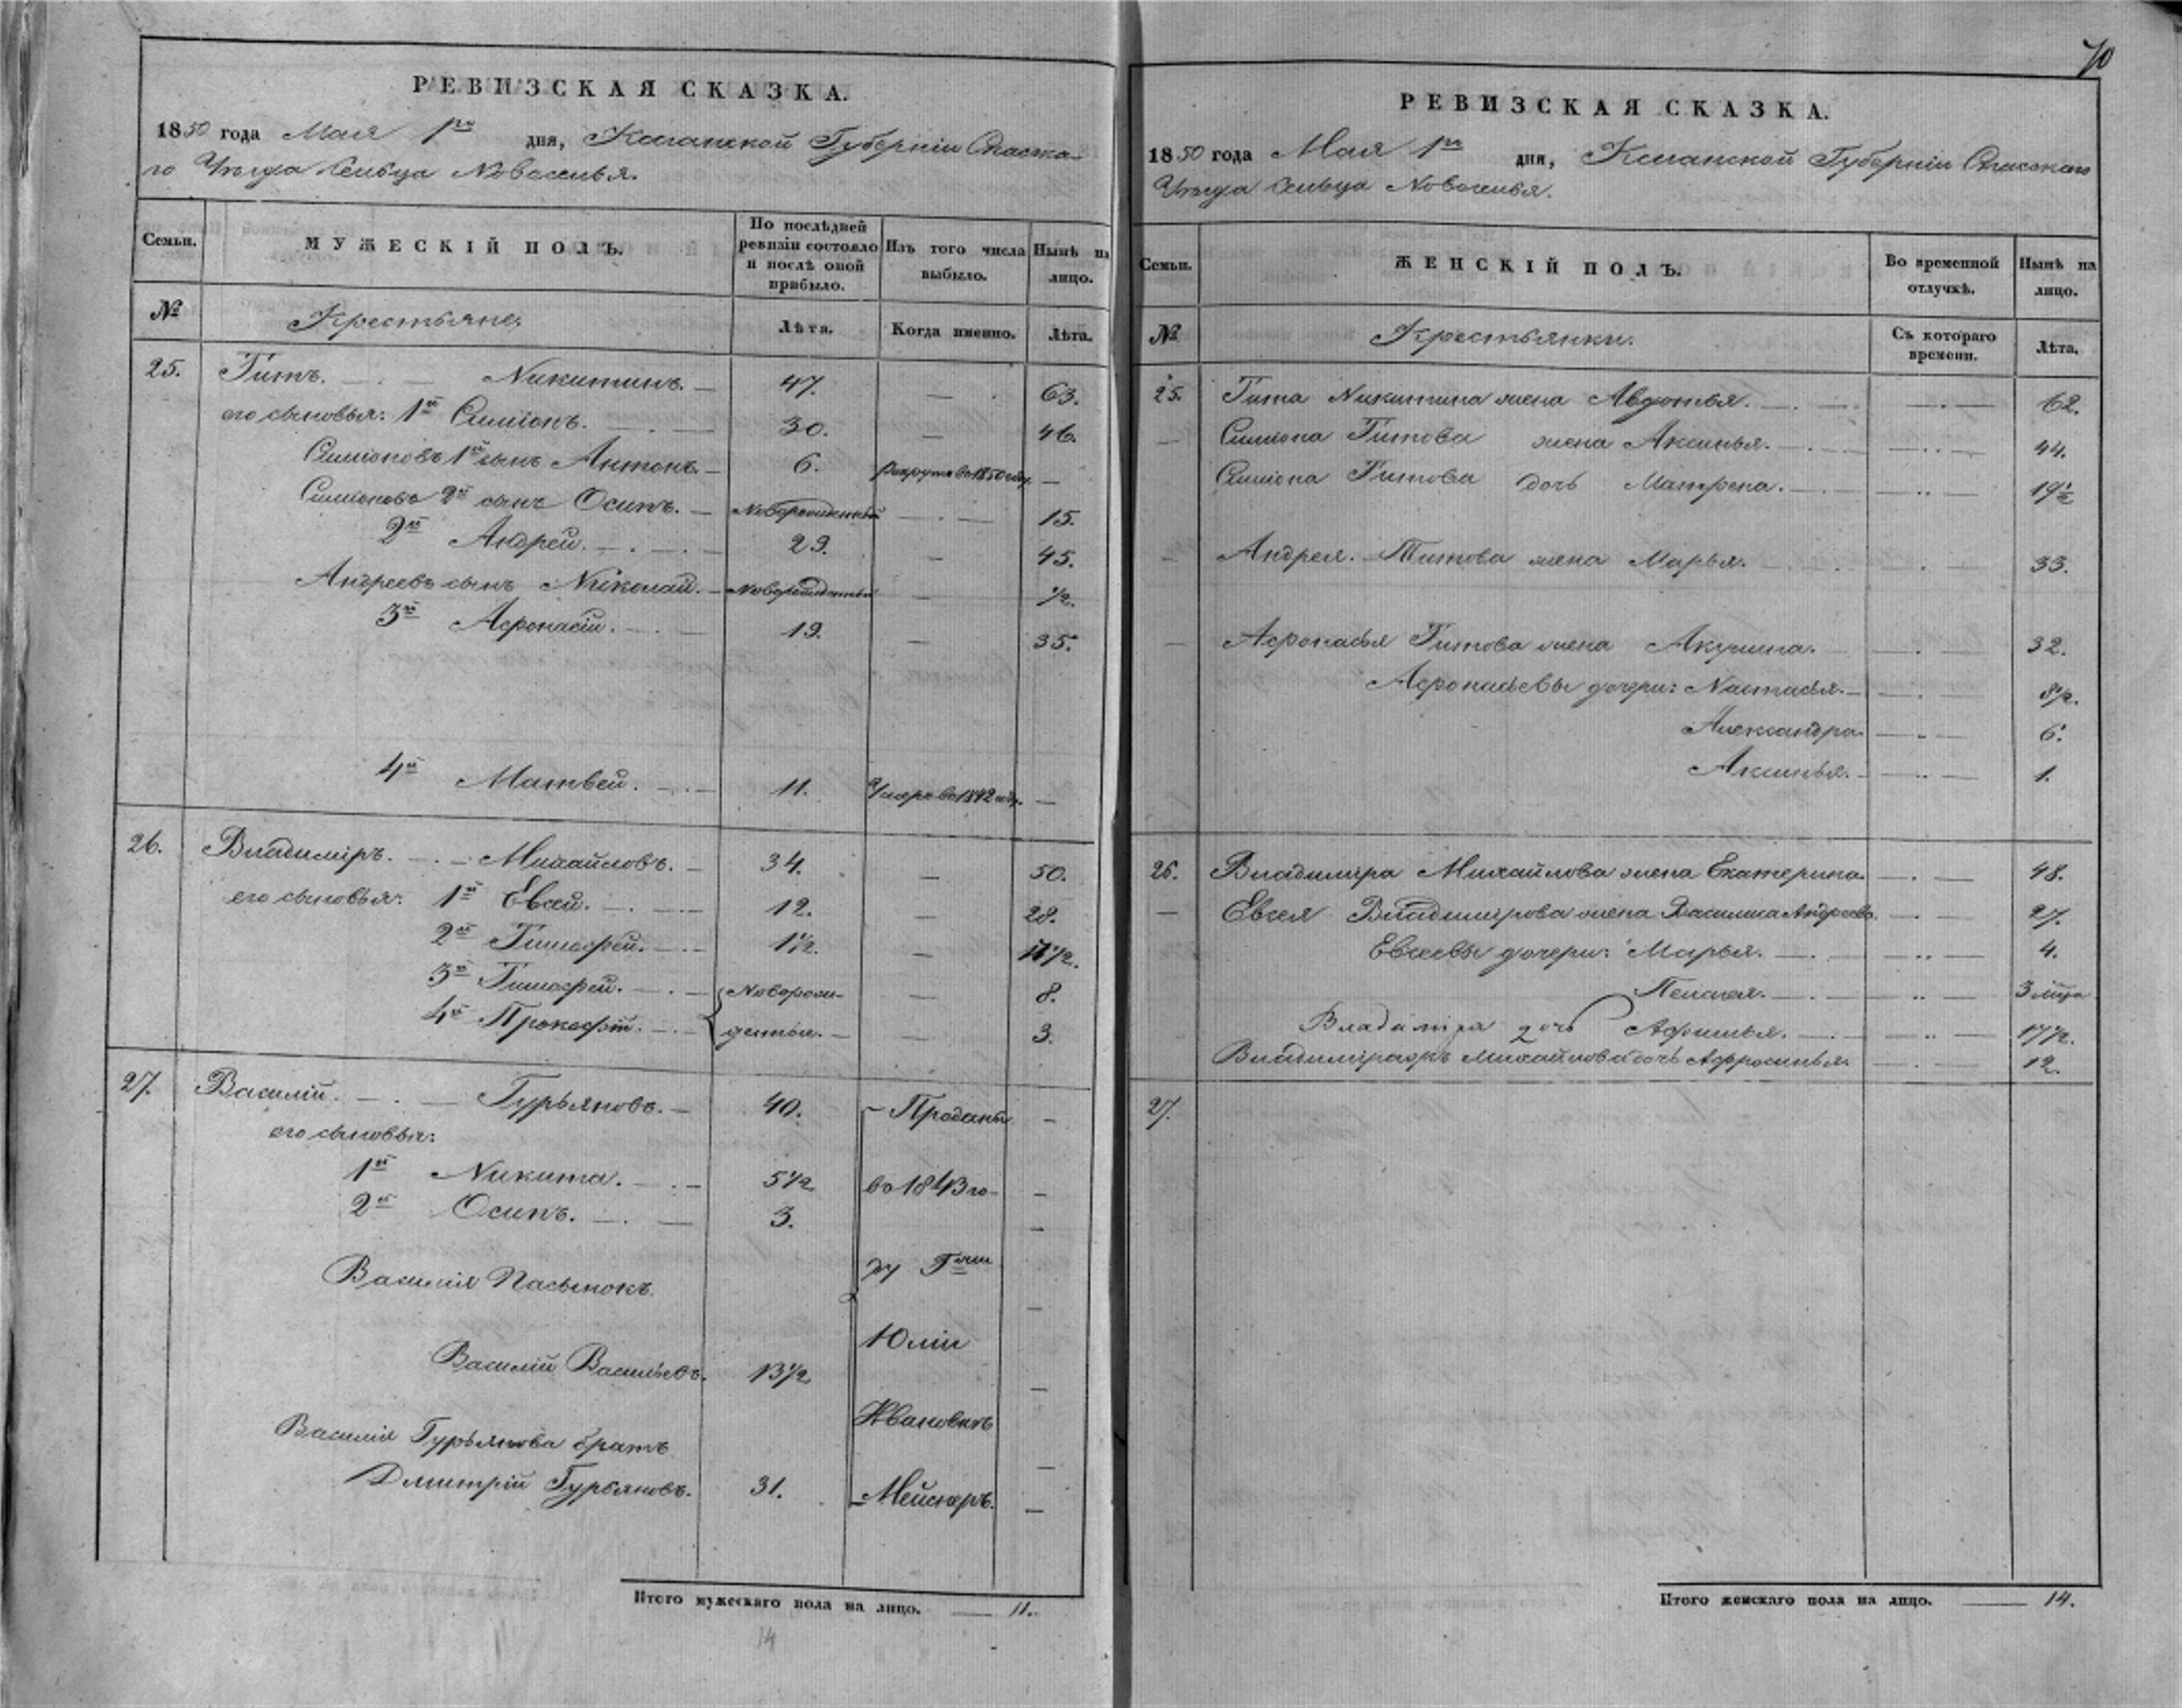 70
РЕВИЗСКАЯ СКАЗКА.
1850 года Мая 1го дня, Казанской Губерніи Спаска-
го Уѣзда Сельца Новоселья.
Семьи. МУЖЕСКІЙ ПОЛЪ. По послѣдней ревизіи состояло и послѣ оной прибыло. Изъ того числа выбыло. Нынѣ на лицо.
№ Крестьяне. Лѣта. Когда именно. Лѣта.
25. Титъ. Никитинъ. 47. — 63.
его сыновья: 1й Симіонъ. 30. — 46.
Симіоновъ 1й сынъ Антонъ. 6. рекрутъ въ 1850 году. —
Симіоновъ 2й сынъ Осипъ. Новорожденный — 15.
2й Андрей. 29. — 45.
Андреевъ сынъ Николай. Новорожденный — 1/2.
3й Афонасій. 19. — 35.
4й Матвей. 11. Умеръ въ 1842 году. —
26. Владиміръ. Михайловъ. 34. — 50.
его сыновья: 1й Евсей. 12. — 28.
2й Тимофей. 1 1/2. — 17 1/2.
3й Тимофей. Новорож- — 8.
4й Прокофій. денные. — 3.
27. Василій. Гурьяновъ. 40. Проданы —
его сыновья:
1й Никита. 5 1/2 въ 1843 го- —
2й Осипъ. 3. —
Василія Пасынокъ. ду Гжи —
Юліи
Василій Васильевъ. 13 1/2 —
Ивановнъ
Василія Гурьянова братъ —
Дмитрій Гурьяновъ. 31. Мейснеръ. —
Итого мужескаго пола на лицо. — 11.
14
РЕВИЗСКАЯ СКАЗКА.
1850 года Мая 1го дня, Казанской Губерніи Спаскаго
Уѣзда Сельца Новоселья.
Семьи. ЖЕНСКІЙ ПОЛЪ. Во временной отлучкѣ. Нынѣ на лицо.
№ Крестьянки. Съ котораго времени. Лѣта.
25. Тита Никитина жена Авдотья. — 62.
— Симіона Титова жена Аксинья. — 44.
Симіона Титова дочь Матрена. — 19 1/2
— Андрея. Титова жена Марья. — 33.
— Афонасья Титова жена Акулина. — 32.
Афонасьевы дочери: Настасья. — 8 1/2.
Александра — 6.
Аксинья. — 1.
26. Владиміра Михайлова жена Екатерина. — 48.
— Евсея Владимірова жена Василиса Андреева. — 27.
Евсеевы дочери: Марья. — 4.
Пелагея. — 3 мца
Владиміра дочь Афимья. — 17 1/2.
Михайлова дочь Афросинья. — 12.
27.
Итого женскаго пола на лицо. — 14.